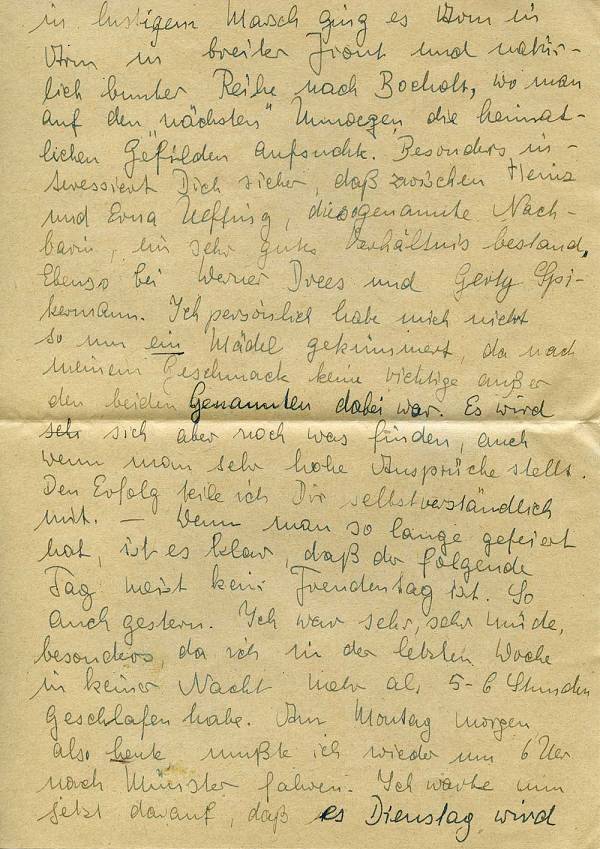 in lustigem Marsch ging es Arm in
Arm in breiter Front und natür-
lich bunter Reihe nach Bocholt, wo man
auf den "nächsten" Umwegen die heimat-
lichen Gefilden aufsuchte. Besonders in-
teressiert Dich sicher, daß zwischen Heinz
und Erna Ueffing, die sogenannte Nach-
barin, ein sehr gutes Verhältnis bestand,
Ebenso bei Werner Drees und Gerty Spi-
kermann. Ich persönlich habe mich nicht
so um ein Mädel gekümmert, da nach
meinem Geschmack keine richtige außer
den beiden Genannten dabei war. Es wird
sich aber noch was finden, auch
wenn man sehr hohe Ansprüche stellt.
Den Erfolg teile ich Dir selbstverständlich
mit. — Wenn man so lange gefeiert
hat, ist es klar, daß der folgende
Tag meist kein Freudentag ist. So
auch gestern. Ich war sehr, sehr müde,
besonders da ich in der letzten Woche
in keiner Nacht mehr als 5-6 Stunden
geschlafen habe. Am Montag morgen
also heute mußte ich wieder um 6 Uhr
nach Münster fahren. Ich warte nun
jetzt darauf, daß es Dienstag wird